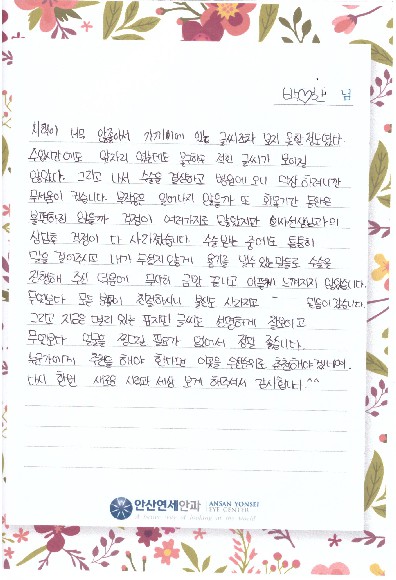 박♡한 님
시력이 너무 안좋아서 가까이에 있는 글씨조차 보지 못할 정도였다.
수업시간에도 앞자리 앉았는데도 불구하고 칠판 글씨가 보이질
않았다. 그리고 나서 수술을 결심하고 병원에 오니 막상 하려니까
무서움이 컸습니다. 부작용은 일어나지 않을까 또 회복기간 동안은
불편하진 않을까 걱정이 여러가지로 많았지만 의사선생님과의
상담후 걱정이 다 사라졌습니다. 수술받는 중에도 든든히
말을 걸어주시고 내가 무섭지 않게 용기를 낼 수 있는 말들로 수술을
진행해 주신 덕분에 무사히 금방 끝나고 아픔께 느껴지지 않았습니다.
무엇보다 모든 분들이 친절하시니 불안도 사라지고 믿음이 갔습니다.
그리고 지금은 멀리 있는 표지판 글씨도 선명하게 잘보이고
무엇보다 얼굴을 찡그릴 필요가 없어서 정말 좋습니다.
누군가에게 추천을 해야 한다면 이곳을 우선으로 추천해야겠네여.
다시 한번 새로운 시력과 세상 보게 해주셔서 감사합니다^^
안산연세안과 ANSAN YONSEI
EYE CENTER
A better way of looking at the world!